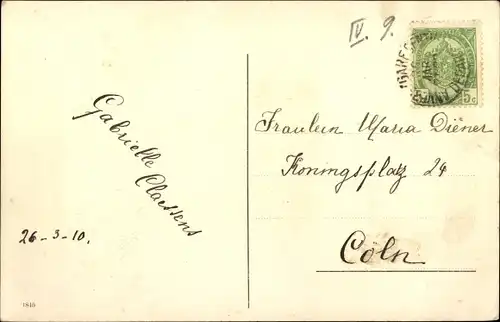 IV. 9.
Gabrielle Claessens
26-3-10.
Fräulein Maria Diener
Koningsplatz 24
Cöln
5c
1840